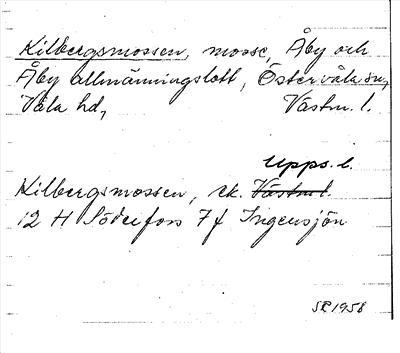 Kilbergsmossen, mosse, Åby och
Åby allmänningslott, Östervåla sn,
Våla hd, Västm. l.
Upps. l.
Kilbergsmossen, ek. Västm l.
12 H Söderfors 7 f Ingensjön
SP 1958